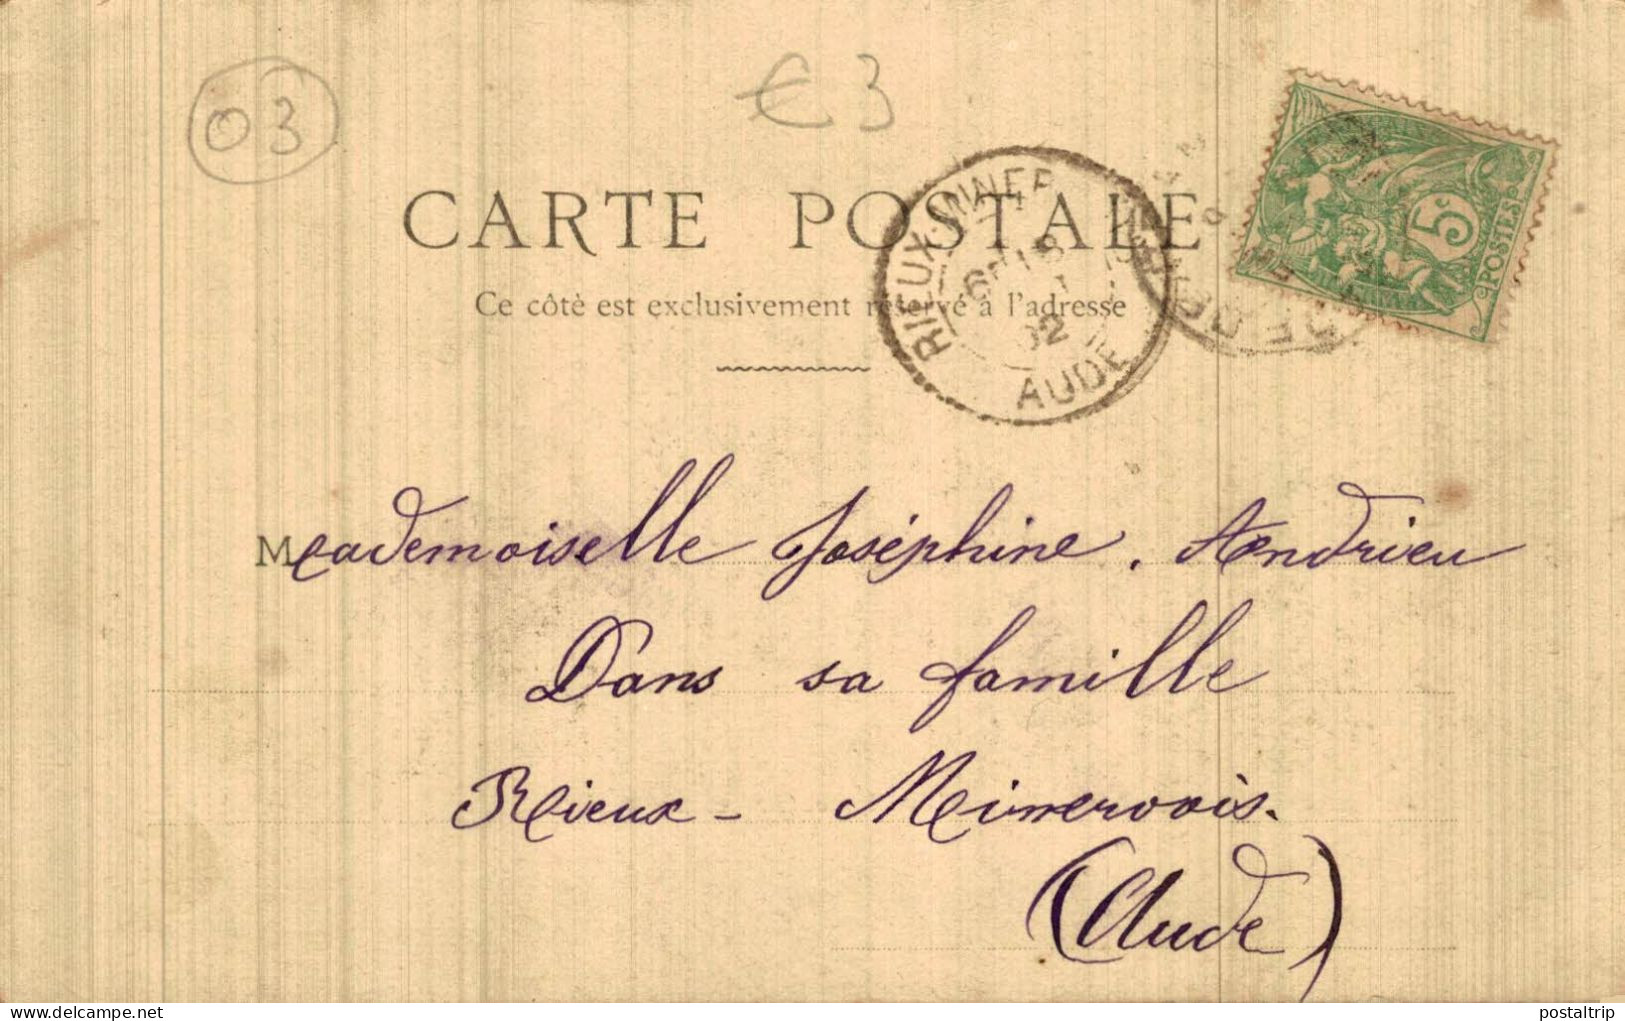 03
€ 3
5c
POSTES
RIEUX-MINER
02
AUDE
CARTE POSTALE
Ce côté est exclusivement réservé à l'adresse
Mademoiselle Joséphine. Andrieu
Dans sa famille
Rieux - Minervois.
(Aude)
www.delcampe.net
postaltrip